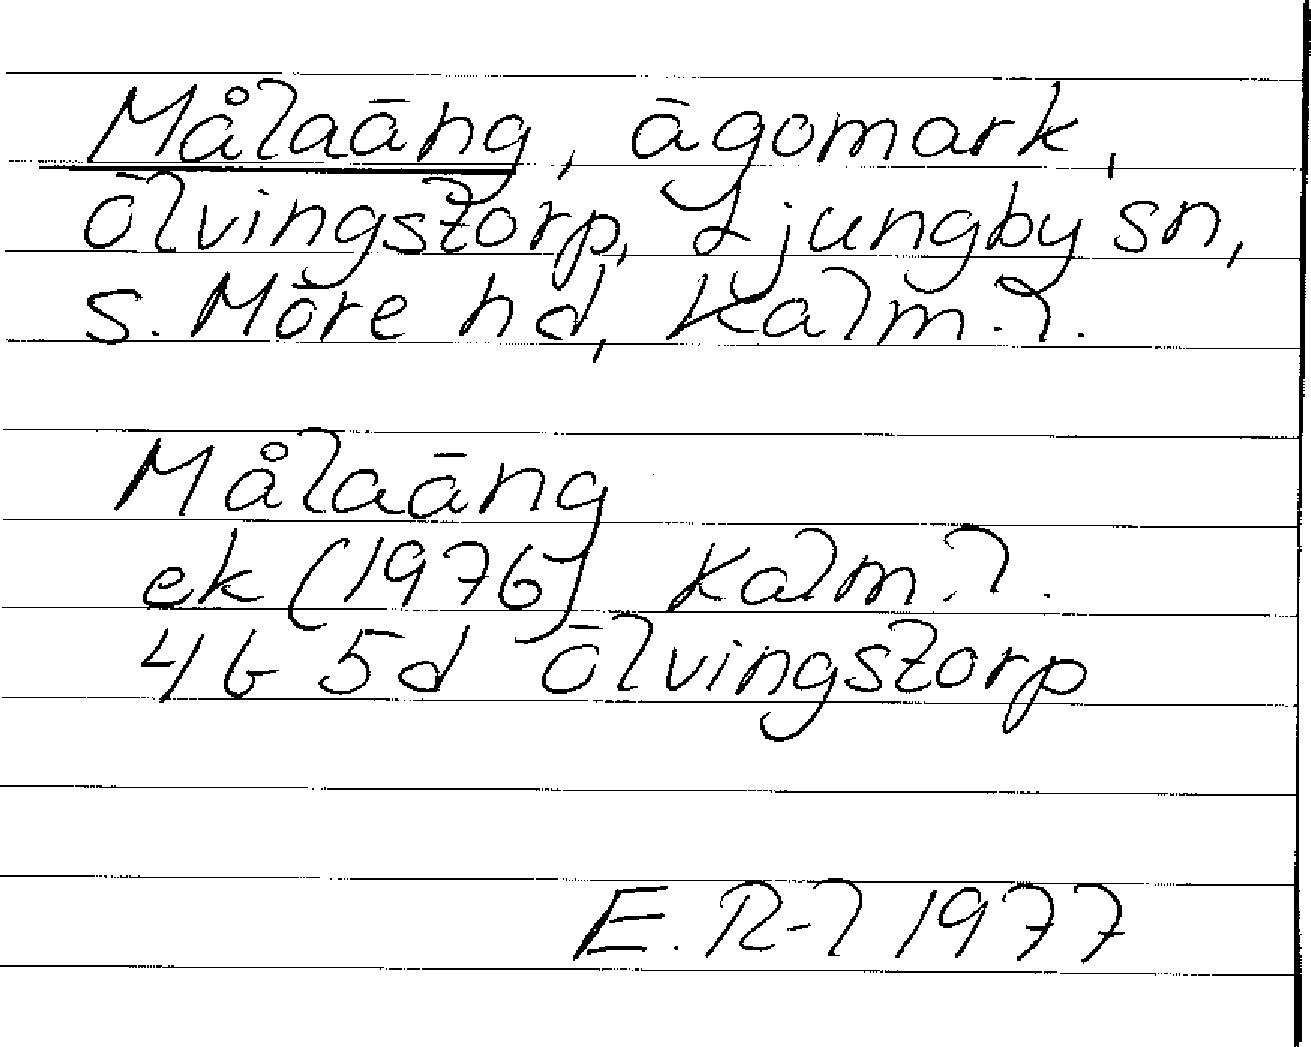 Målaäng, ägomark,
Ölvingstorp, Ljungby sn,
S. Möre hd, Kalm. l.
Målaäng
ek (1976) Kalm. l.
4G 5d Ölvingstorp
E. R-l 1977